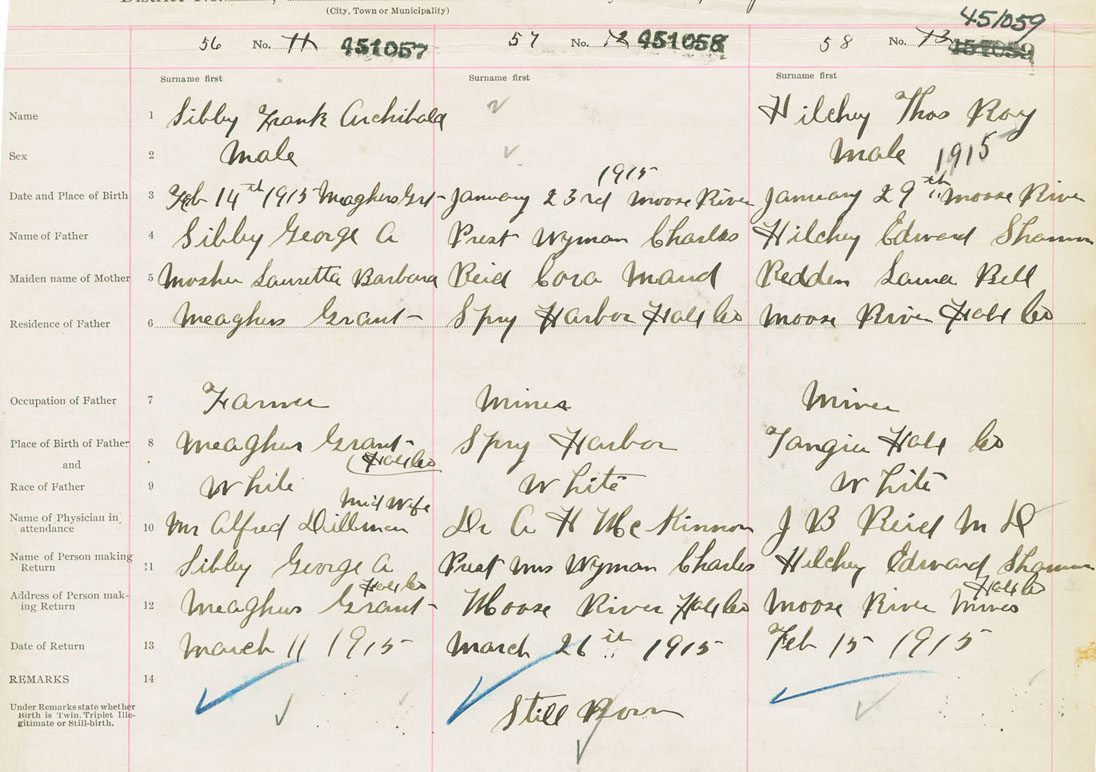 District No.
(City, Town or Municipality)
451059
56 No. 11 451057 57 No. 12 451058 58 No. 13 451059
Surname first Surname first Surname first
Name 1 Sibby Frank Archibald Hilchey Thos Roy
Sex 2 Male Male 1915
1915
Date and Place of Birth 3 Feb 14th 1915 Meaghers Grt January 23rd Moose River January 29th " Moose River
Name of Father 4 Sibby George A Prest Wyman Charles Hilchey Edward Shannon
Maiden name of Mother 5 Mosher Lauretta Barbara Reid Cora Maud Redden Laura Bell
Residence of Father 6 Meaghers Grant Spry Harbor Halifax Co Moose River Half Co
Occupation of Father 7 Farmer Mines Miner
Place of Birth of Father 8 Meaghers Grant Spry Harbor Tangier Half Co
Half Co
and
Race of Father 9 White White White
Mid Wife
Name of Physician in attendance 10 Mrs Alfred Dillman Dr A H McKinnon J B Reid M D
Name of Person making Return 11 Sibby George A Prest Mrs Wyman Charles Hilchey Edward Shannon
Half Co Half Co
Address of Person making Return 12 Meaghers Grant Moose River Half Co Moose River Mines
Date of Return 13 March 11 1915 March 26th 1915 Feb 15 1915
REMARKS 14
Under Remarks state whether
Birth is Twin, Triplet Ille-
gitimate or Still-birth.
Still Born